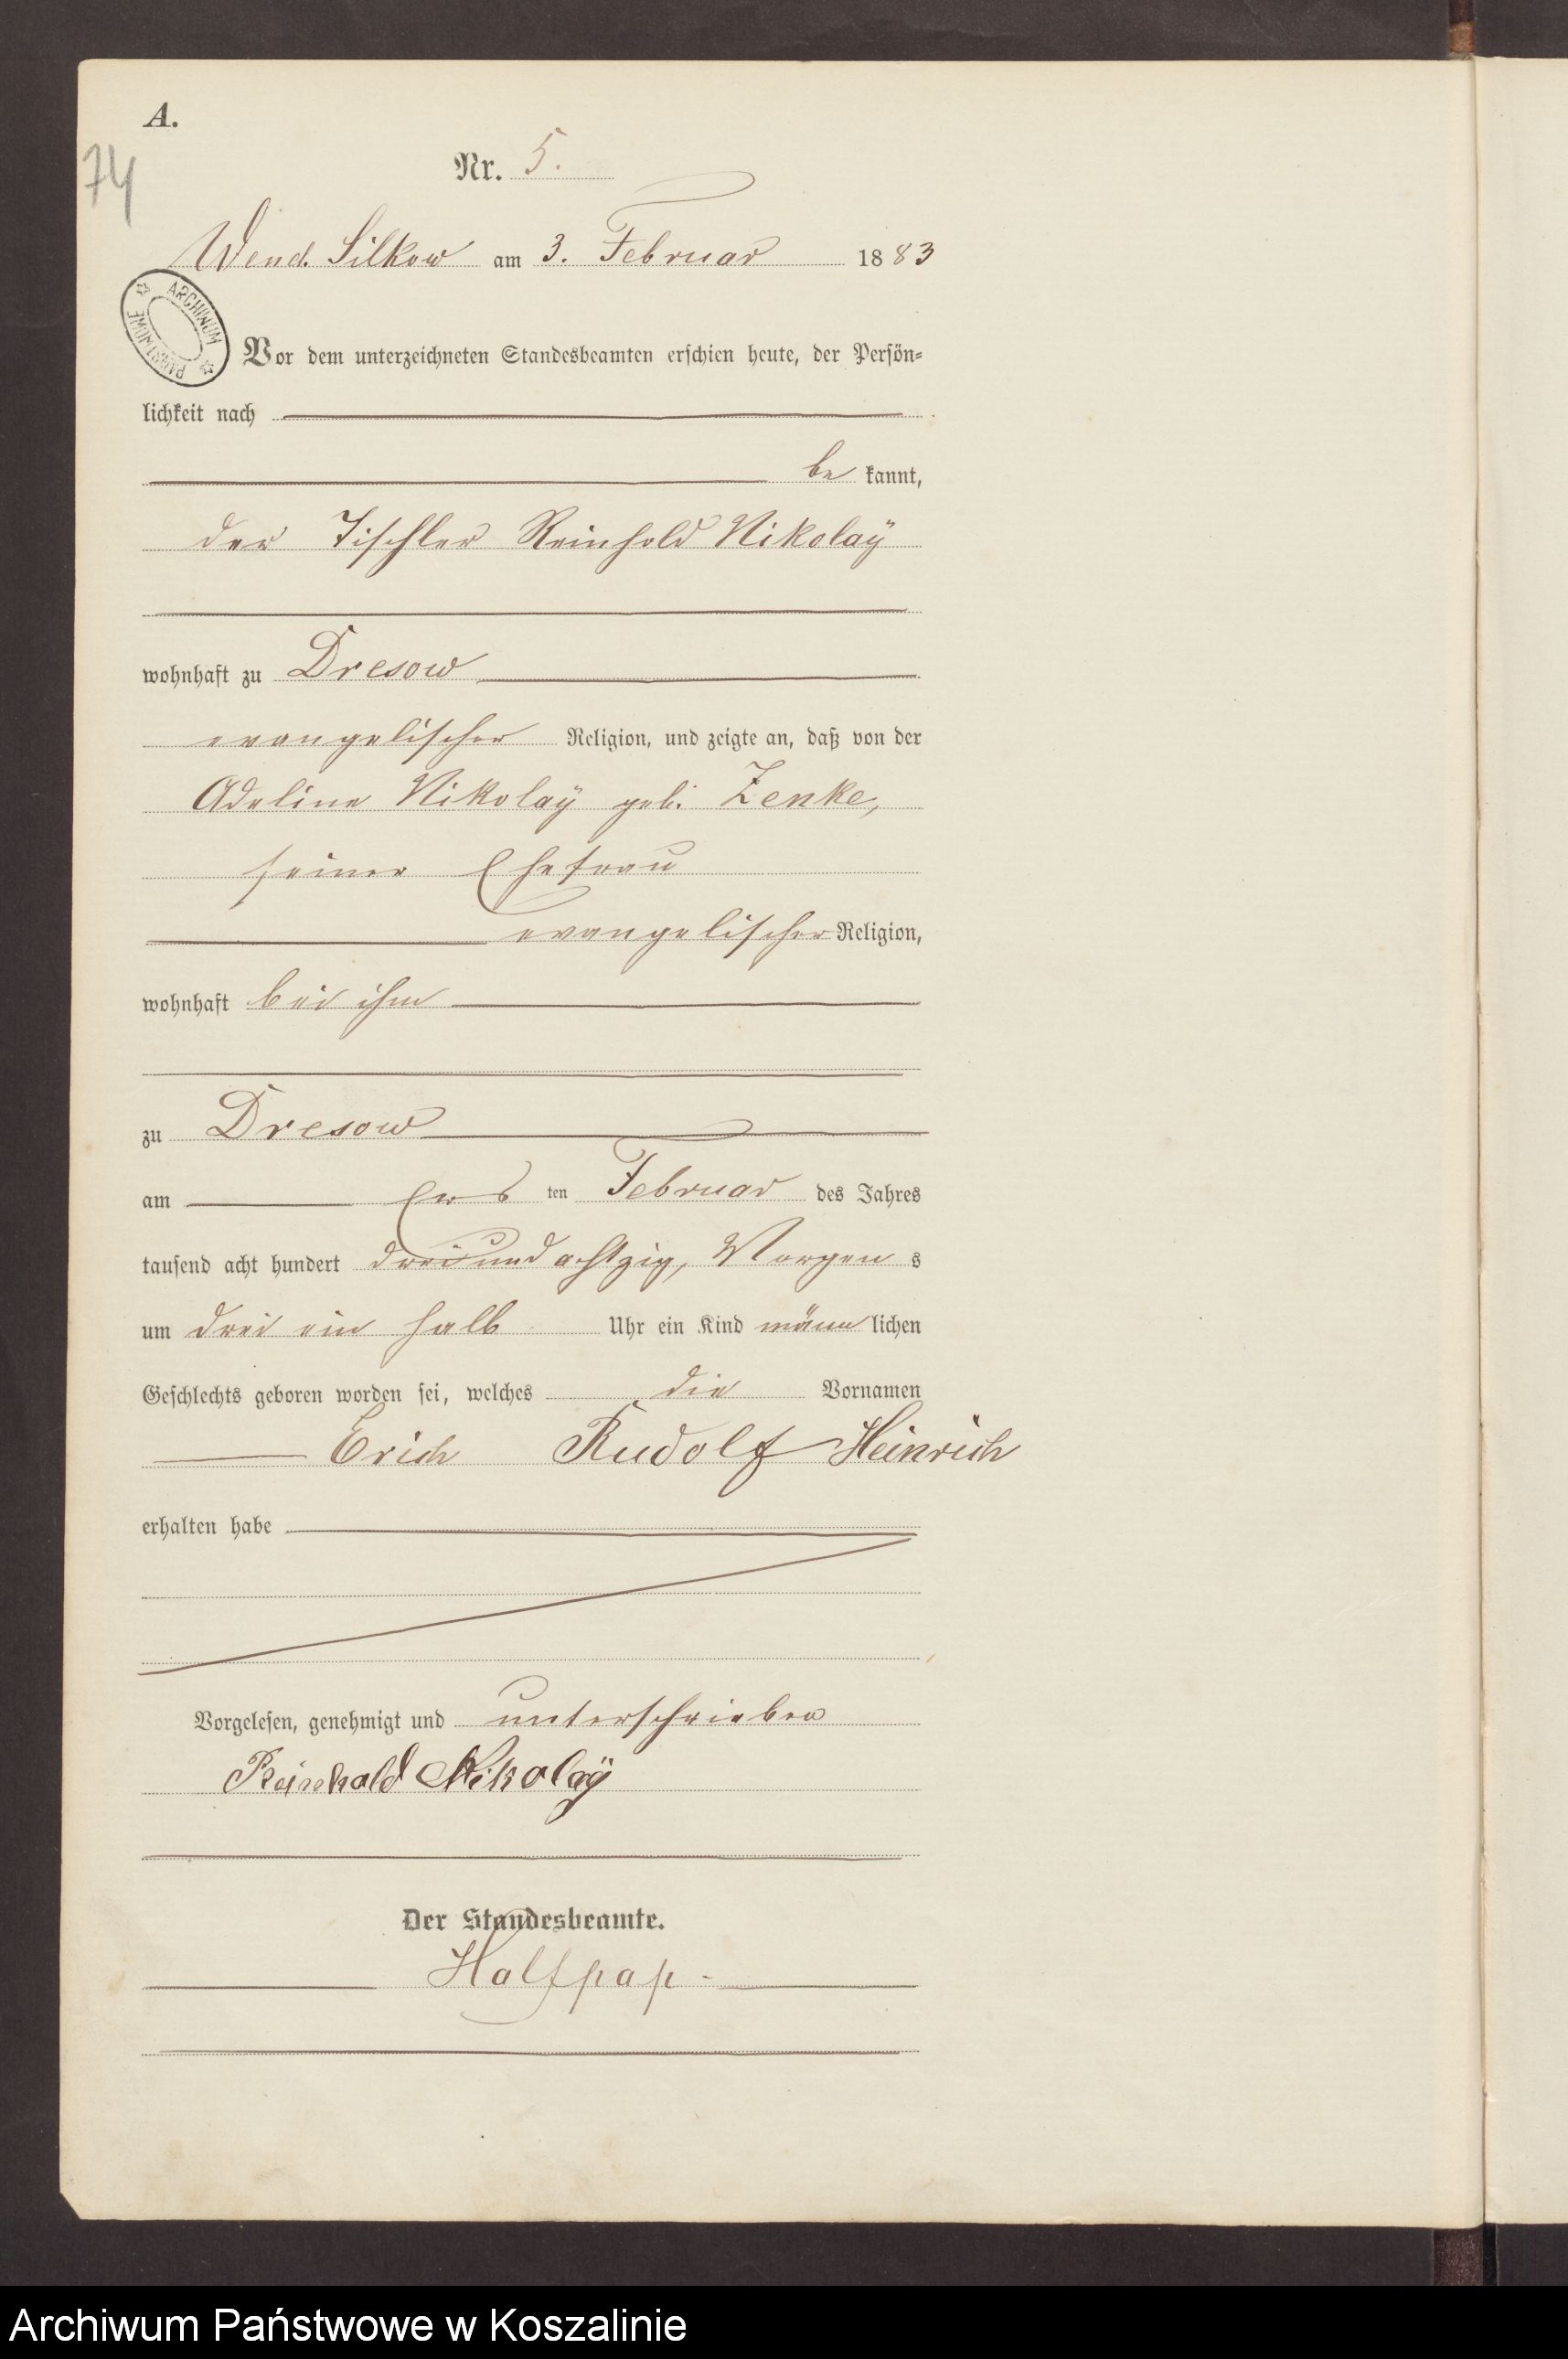 A.
74
Nr. 5.
Wend. Silkow am 3. Februar 1883
ARCHIWUM PAŃSTWOWE
Vor dem unterzeichneten Standesbeamten erschien heute, der Persön-
lichkeit nach
be kannt,
der Tischler Reinhold Nikolaÿ
wohnhaft zu Dresow
evangelischer Religion, und zeigte an, daß von der
Adeline Nikolaÿ geb. Zenke,
seiner Ehefrau
evangelischer Religion,
wohnhaft bei ihm
zu Dresow
am ten Februar des Jahres
tausend acht hundert drei und achtzig, Morgen s
um drei ein halb Uhr ein Kind männ lichen
Geschlechts geboren worden sei, welches die Vornamen
Erich Rudolf Heinrich
erhalten habe
Vorgelesen, genehmigt und unterschrieben
Reinhold Nikolaÿ
Der Standesbeamte.
Halfpap.
Archiwum Państwowe w Koszalinie